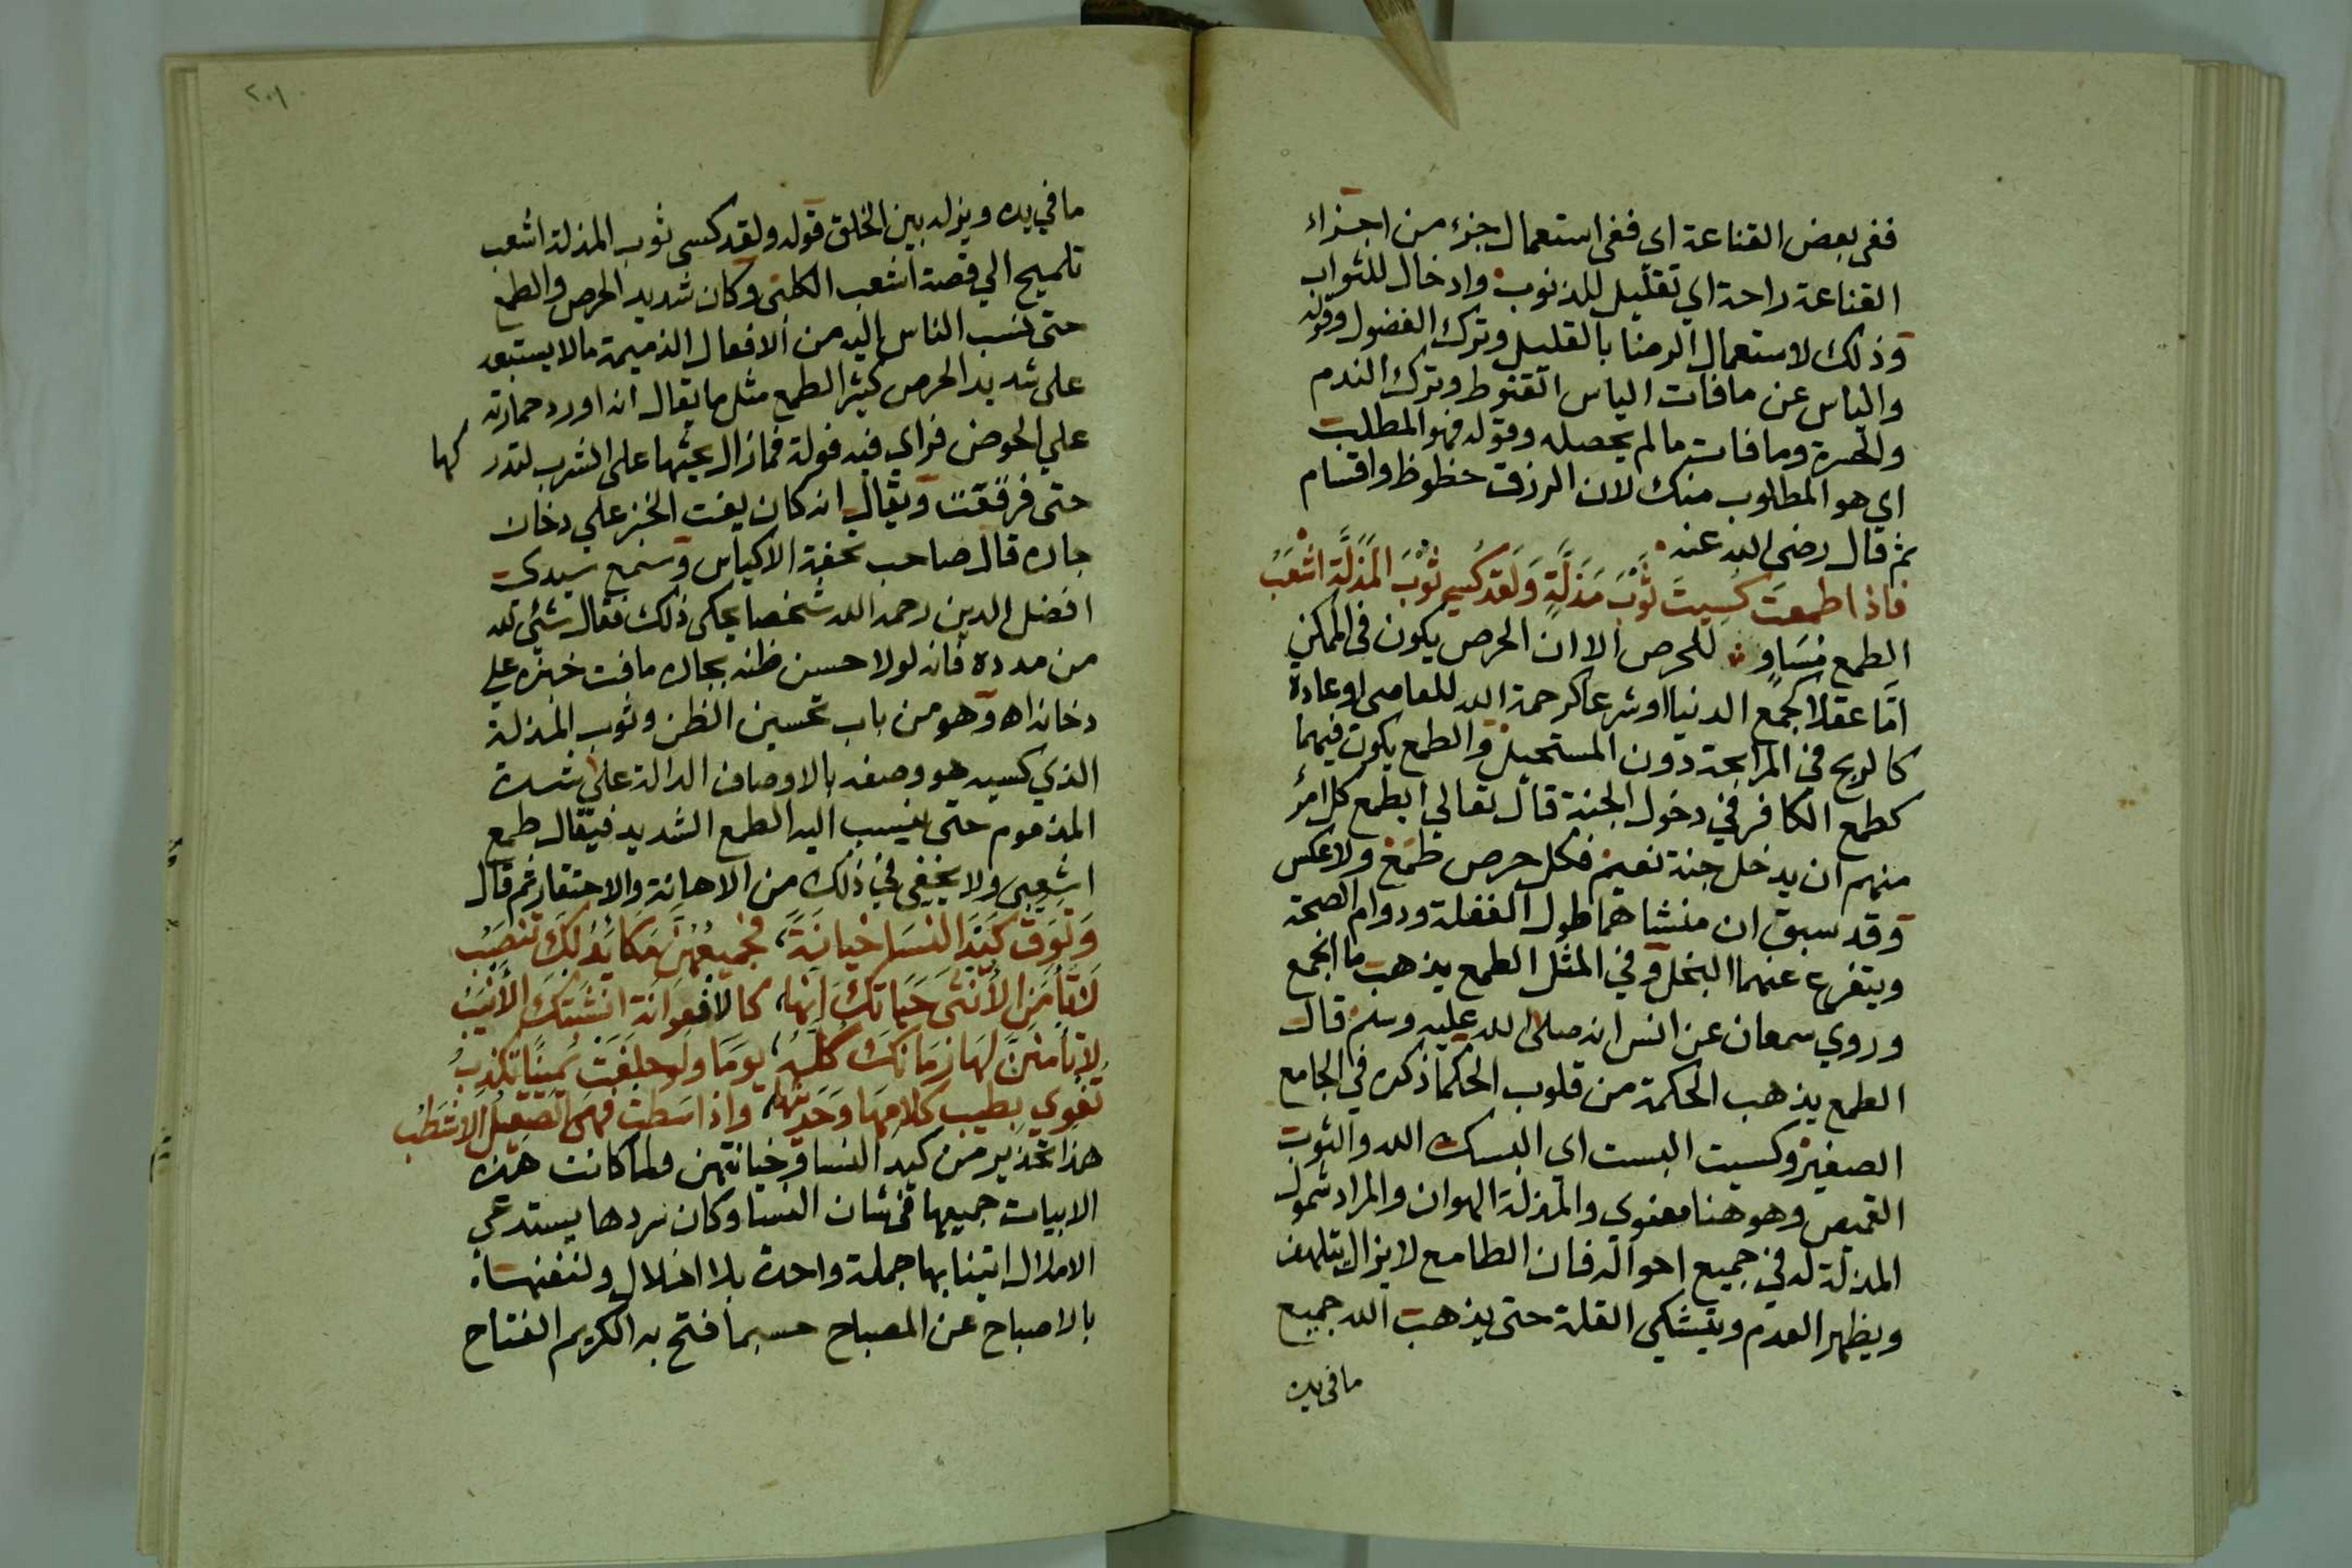 ففى بعض القناعة اي ففى استعمال جزء من اجزاء
القناعة راحة اي تقليل للذنوب وادخال للثواب
وذلك لاستعمال الرضا بالقليل وترك الفضول وقوله
والياس عن ما فات الياس القنوط وترك الندم
والحسرة وما فات ما لم يحصله وقوله فهو المطلب
اي هو المطلوب منك لان الرزق حظوظ واقسام
ثم قال رضى الله عنه
فاذا طمعت كسيت ثوب مذلة ولقد كسي ثوب المذلة اشعب
الطمع مساو للحرص الا ان الحرص يكون في الممكن
اما عقلا كجمع الدنيا او شرعا كرحمة الله للعاصى او عادة
كالربح في المرابحة دون المستحيل والطمع يكون فيهما
كطمع الكافر في دخول الجنة قال تعالي ايطمع كل امرئ
منهم ان يدخل جنة نعيم فكل حرص طمع ولا عكس
وقد سبق ان منشاهما طول الغفلة ودوام الصحة
ويتفرع عنهما البخل وفي المثل الطمع يذهب ما اجمع
وروي سمعان عن انس انه صلى الله عليه وسلم قال
الطمع يذهب الحكمة من قلوب الحكما ذكره في الجامع
الصغير وكسيت البست اى البسك الله والثوب
القميص وهو هنا معنوي والمذلة الهوان والمراد شمول
المذلة له في جميع احواله فان الطامع لا يزال يتلهف
ويظهر العدم ويتشكى القلة حتى يذهب الله جميع
ما في يده
٢٠١
ما في يده ويذله بين الخلق قوله ولقد كسى ثوب المذلة اشعب
تلميح الي قصة اشعب الكلبى وكان شديد الحرص والطمع
حتى نسب الناس اليه من الافعال الذميمة ما لا يستبعد
على شديد الحرص كثير الطمع مثل ما يقال انه اورد حمارته
علي الحوض فراي فيه فولة فما زال يحثها على الشرب لتدركها
حتى فرقعت ويقال انه كان يفت الخبز علي دخان
جاره قال صاحب تحفة الاكياس وسمع سيدى
افضل الدين رحمه الله شخصا يحكى ذلك فقال شئ لله
من مدده فانه لولا حسن ظنه بجاره ما فت خبزه علي
دخانه اه وهو من باب تحسين الظن وثوب المذلة
الذي كسيه هو وصفه بالاوصاف الدالة على شدة
المذموم حتى ينسب اليه الطمع الشديد فيقال طمع
اشعبى ولا يخفى في ذلك من الاهانة والاحتقار ثم قال
وتوق كيد النسا خيانة فجميعهن مكائد لك تنصب
لا تأمن الأنثى حياتك انها كالأفعوانة
لا تأمنن لها زمانك كله يوما ولو حلفت يمينا تكذب
تغوي بطيب كلامها وحديثها واذا سطت فهى الصقيل الاشطب
هذا تحذير من كيد النسا وخيانتهن ولما كانت هذه
الابيات جميعها في شان النسا وكان سردها يستدعى
الاملال اتينا بها جملة واحدة بلا اخلال
بالاصباح عن المصباح حسبما فتح به الكريم الفتاح